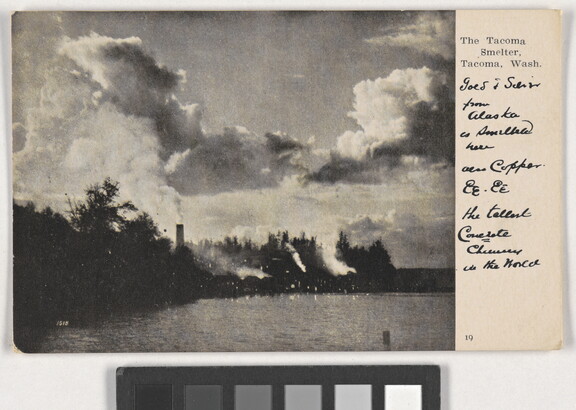 The Tacoma
Smelter,
Tacoma, Wash.
Gold & Silver
from
Alaska
is Smelted
here
also Copper.
Etc. Etc
the tallest
Concrete
Chimney
in the World
19